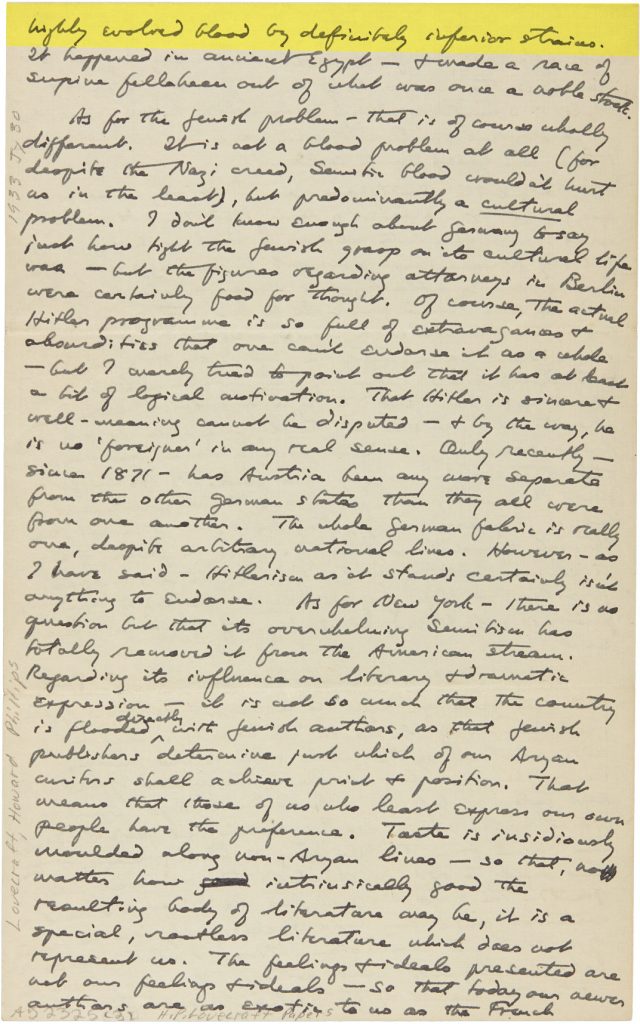 highly evolved blood by definitely inferior strains.
It happened in ancient Egypt — & made a race of
supine fellaheen out of what was once a noble stock.
As for the Jewish problem — that is of course wholly
different. It is not a blood problem at all (for
despite the Nazi creed, Semitic blood wouldn't hurt
us in the least), but predominantly a cultural
problem. I don't know enough about Germany to say
just how tight the Jewish grasp on its cultural life
was — but the figures regarding attorneys in Berlin
were certainly food for thought. Of course, the actual
Hitler programme is so full of extravagances &
absurdities that one can't endorse it as a whole
— but I merely tried to point out that it has at least
a bit of logical motivation. That Hitler is sincere &
well-meaning cannot be disputed — & by the way, he
is no 'foreigner' in any real sense. Only recently —
since 1871 — has Austria been any more separate
from the other German states than they all were
from one another. The whole German fabric is really
one, despite arbitrary national lines. However — as
I have said — Hitlerism as it stands certainly isn't
anything to endorse. As for New York — there is no
question but that its overwhelming Semitism has
totally removed it from the American stream.
Regarding its influence on literary & dramatic
expression — it is not so much that the country
is flooded directly with Jewish authors, as that Jewish
publishers determine just which of our Aryan
writers shall achieve print & position. That
means that those of us who least express our own
people have the preference. Taste is insidiously
moulded along non-Aryan lines — so that, no
matter how intrinsically good the
resulting body of literature may be, it is a
special, rootless literature which does not
represent us. The feelings & ideals presented are
not our feelings & ideals — so that today our newer
authors are as exotic to us as the French
1933 Jy 30
Lovecraft, Howard Phillips
H. P. Lovecraft Papers